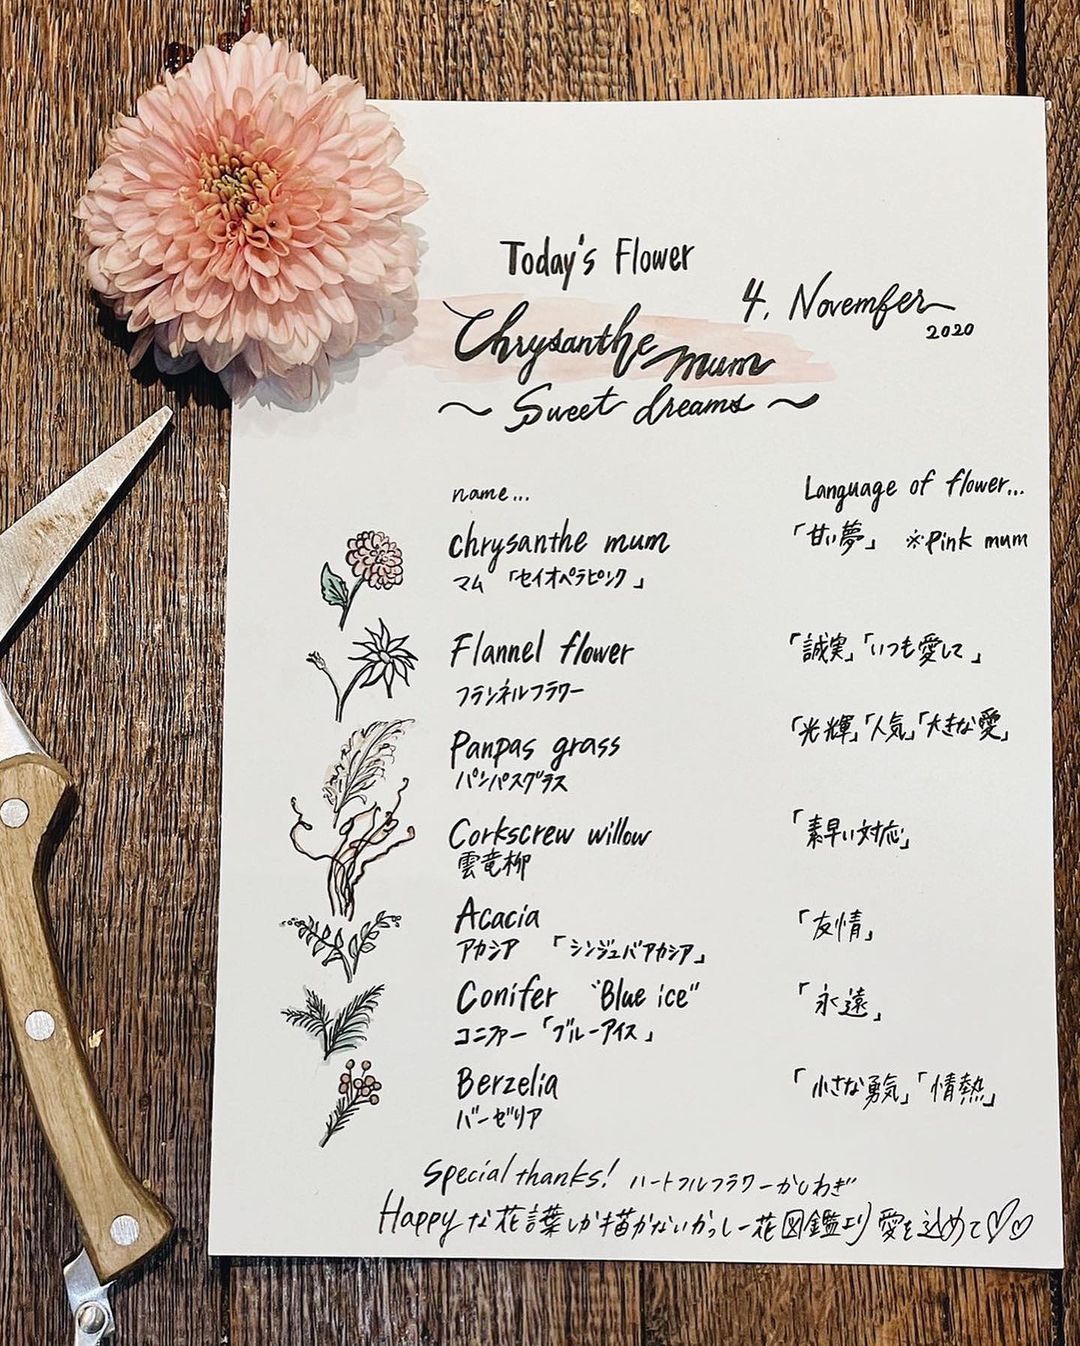 Today's Flower
4. November
2020
Chrysanthe mum
~ Sweet dreams ~
name...
Language of flower...
chrysanthe mum
「甘い夢」 ※Pink mum
マム 「セイオペラピンク」
Flannel flower
「誠実」「いつも愛して」
フランネルフラワー
Panpas grass
「光輝」「人気」「大きな愛」
パンパスグラス
Corkscrew willow
「素早い対応」
雲竜柳
Acacia
「友情」
アカシア 「シンジュバアカシア」
Conifer "Blue ice"
「永遠」
コニファー「ブルーアイス」
Berzelia
「小さな勇気」「情熱」
バーゼリア
Special thanks! ハートフルフラワーかしわぎ
Happyな花言葉しか描かないかっしー花図鑑より 愛を込めて♡♡